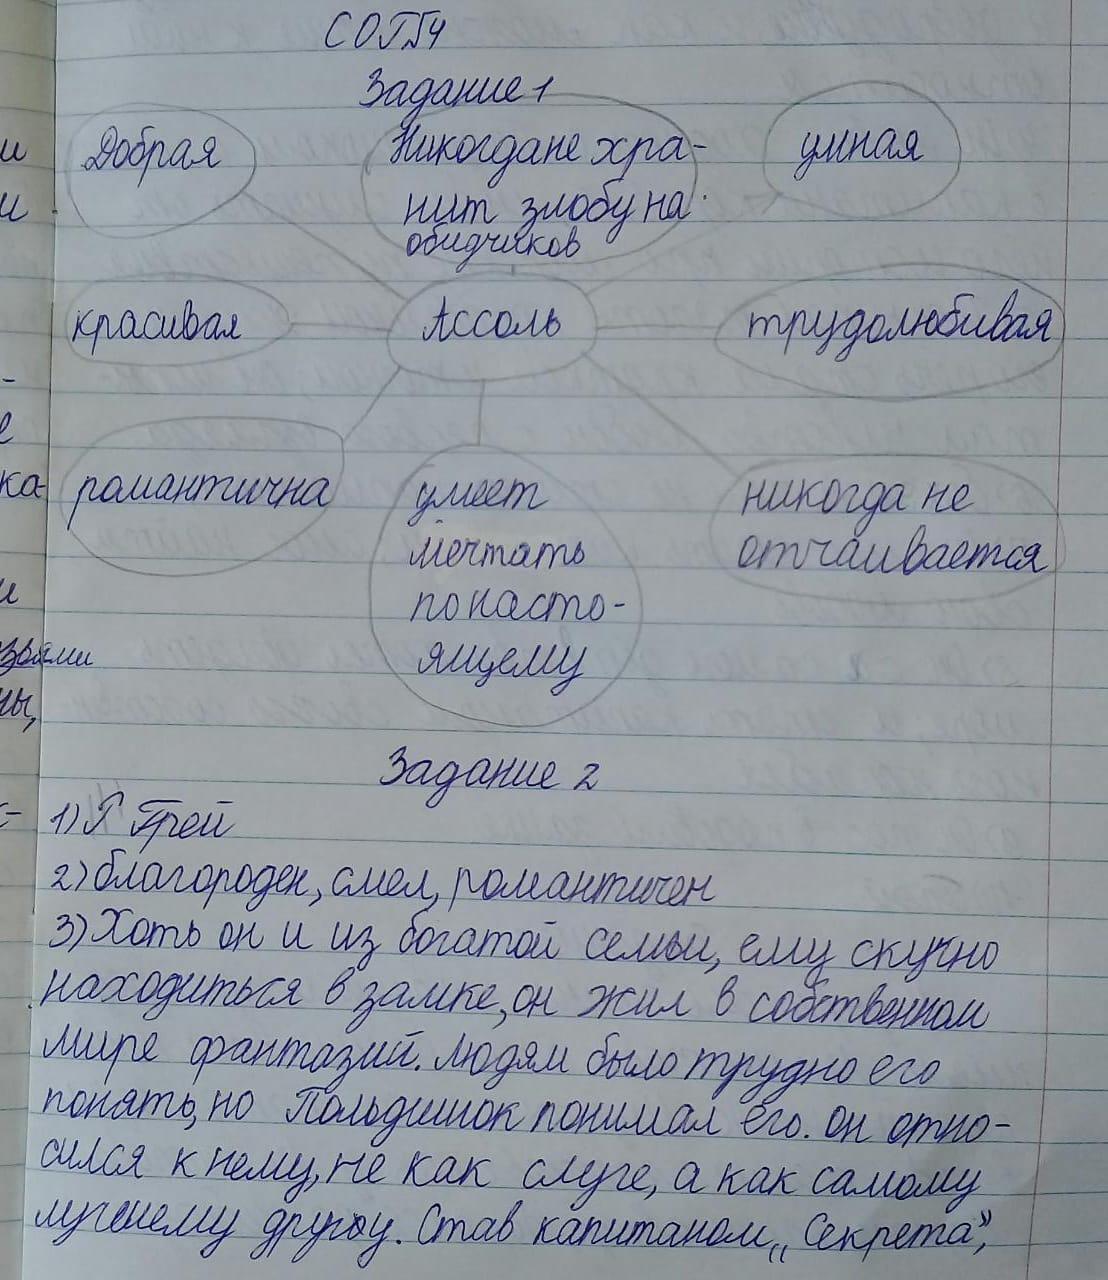 СОГП4
Задание 1
и
Добрая
Никогдане хра-
умная
и
нит злобу на
обидчиков
красивая
Ассоль
трудолюбивая
-
е
ка-
романтична
умеет
никогда не
мечтать
отчаивается
понасто-
и
ящему
зьями
ны,
Задание 2
1) Г Грей
2) благороден, смел, романтичен
3) Хоть он и из богатой семьи, ему скучно
находиться в замке, он жил в собственном
мире фантазий. Людям было трудно его
понять, но Польдишок понимал его. он отно-
сился к нему, не как слуге, а как самому
лучшему другу. Став капитаном „Секрета”,